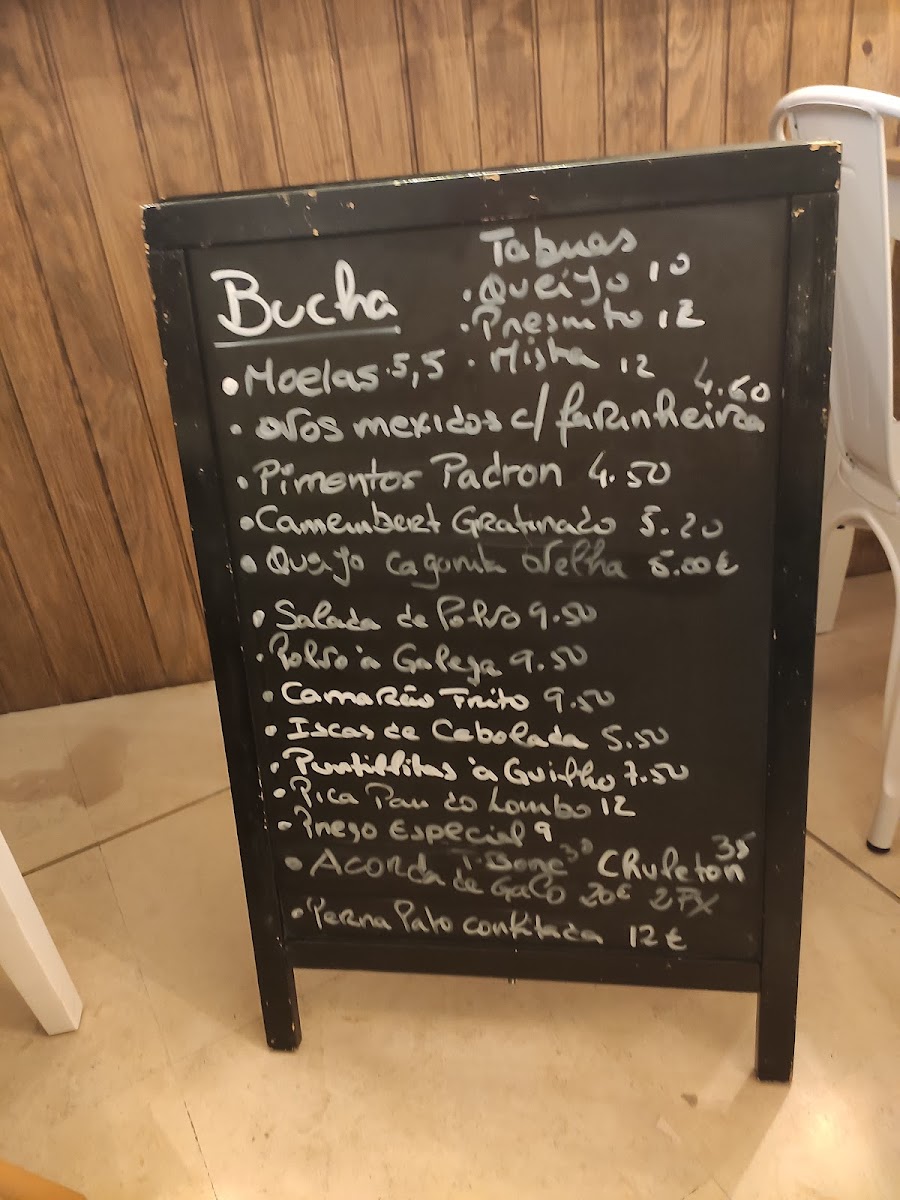 Bucha
Tabuas
• Queijo 10
• Presunto 12
• Mista 12
• Moelas 5,5
• ovos mexidos c/ farinheira 4.60
• Pimentos Padron 4.50
• Camembert Gratinado 5.20
• Queijo Ovelha 5.00€
• Salada de Polvo 9.50
• Polvo à Galega 9.50
• Camarão Frito 9.50
• Iscas de Cebolada 5.50
• Puntillitas à Guilho 7.50
• Pica Pau do Lombo 12
• Prego Especial 9
T-Bone Chuleton 35
• Acorda de Galo 20€
• Perna Pato confitada 12€